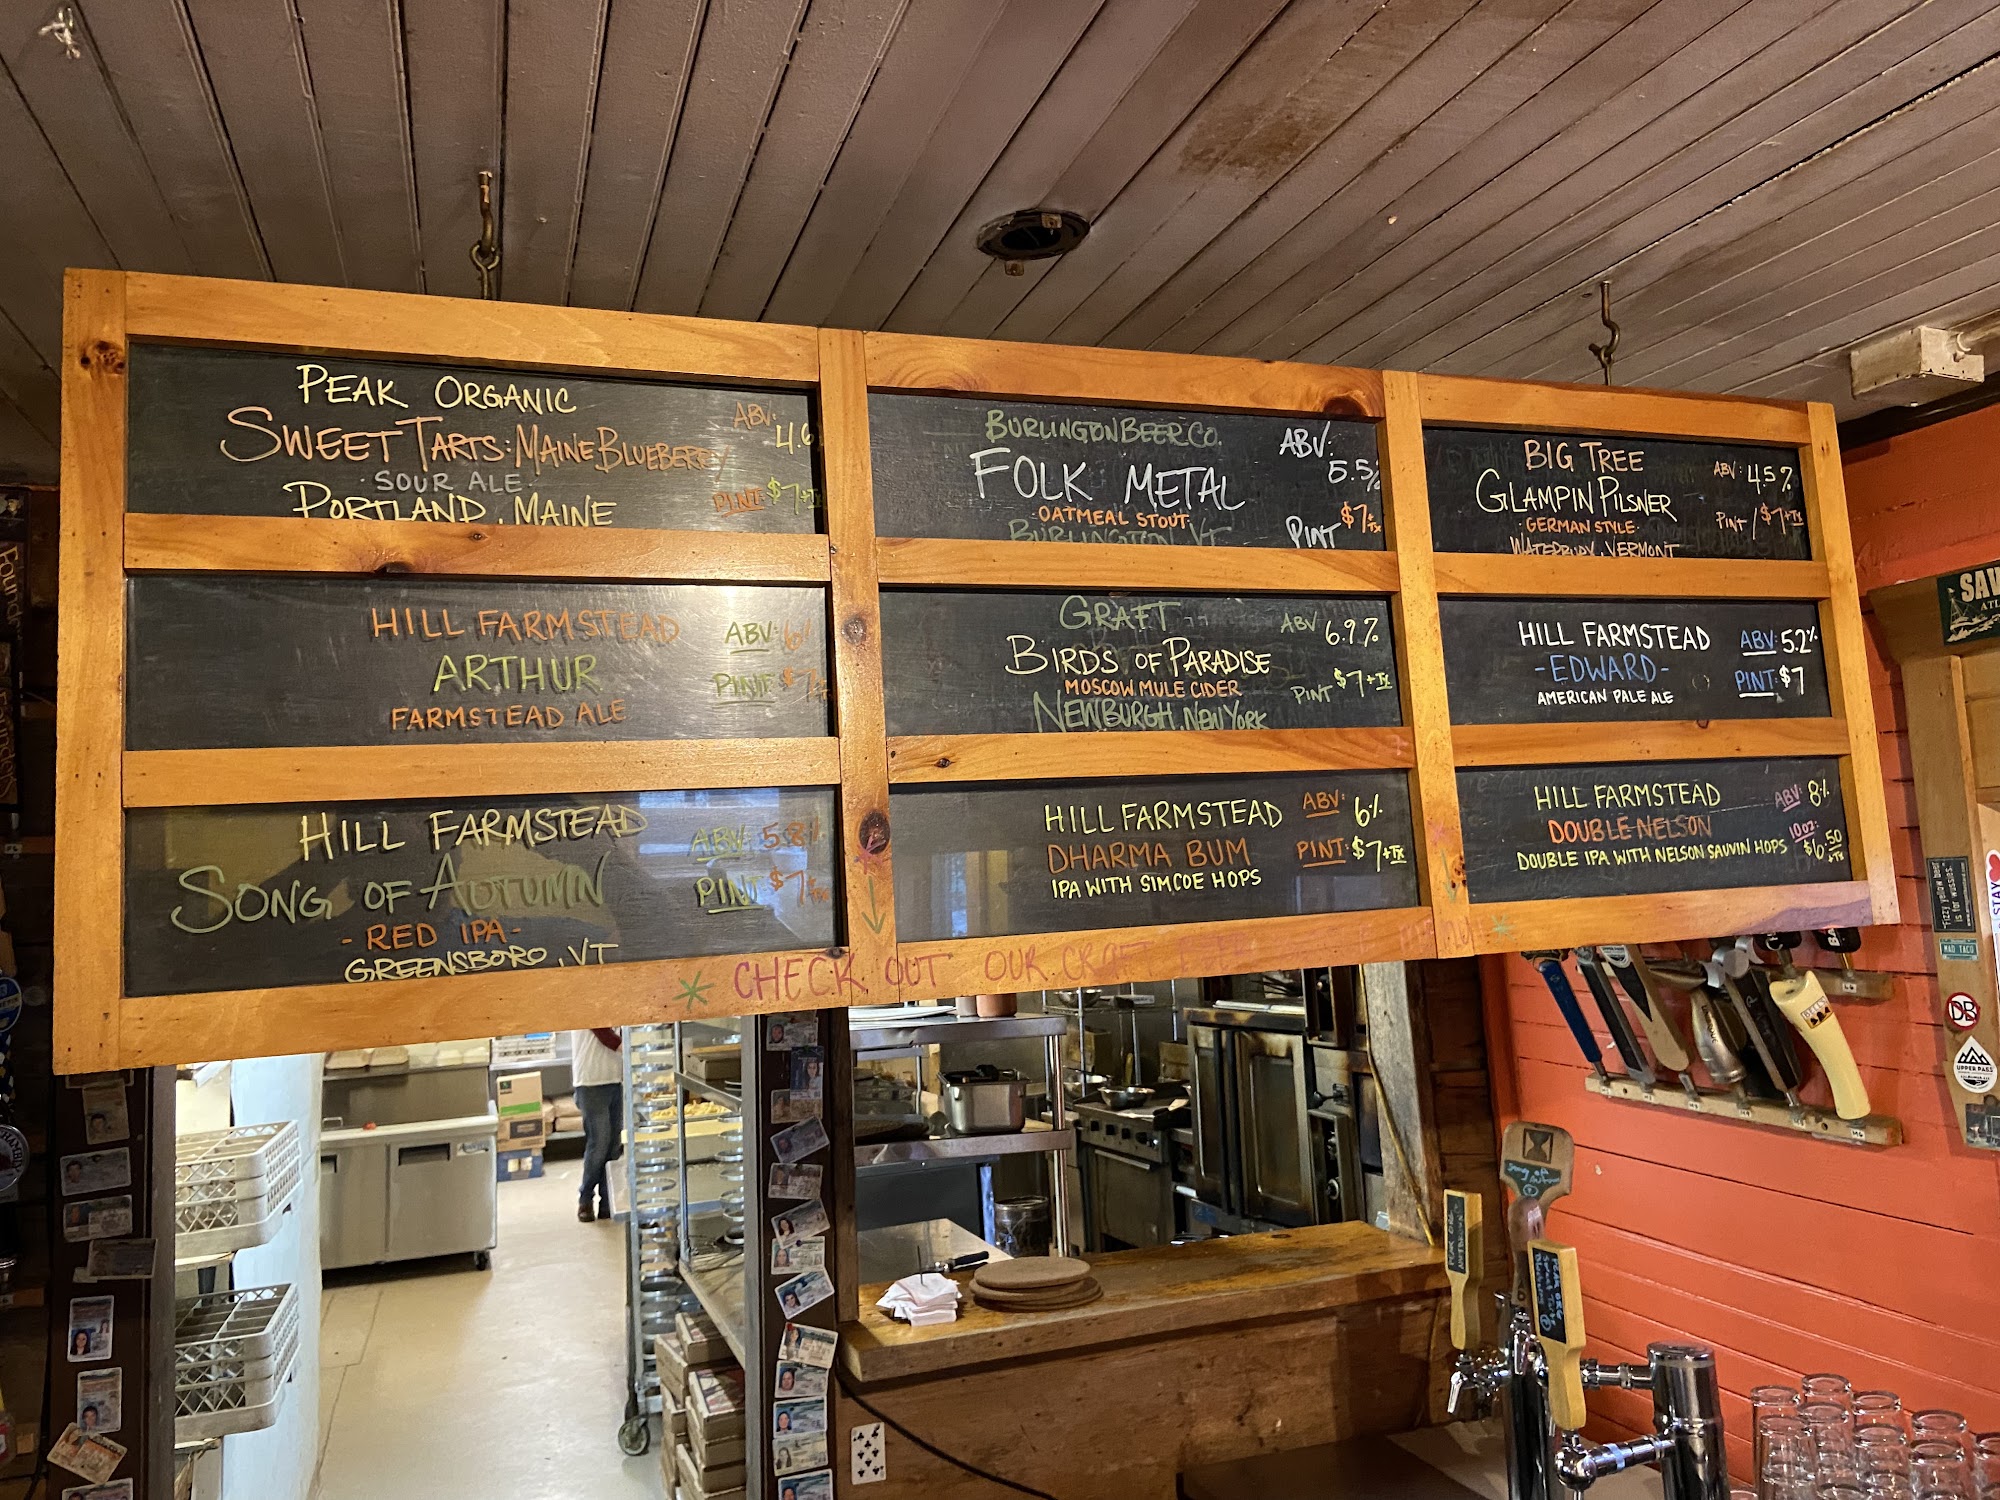 PEAK ORGANIC
SWEET TARTS · MAINE BLUEBERRY
· SOUR ALE ·
PORTLAND, MAINE
ABV: 4.6
PINT $7+TX
BURLINGTON BEER CO.
FOLK METAL
· OATMEAL STOUT ·
BURLINGTON, VT
ABV: 5.5%
PINT $7+TX
BIG TREE
GLAMPIN PILSNER
· GERMAN STYLE ·
WATERBURY, VERMONT
ABV: 4.5%
PINT / $7+TX
HILL FARMSTEAD
ARTHUR
FARMSTEAD ALE
ABV: 6%
PINT $7+TX
GRAFT
BIRDS OF PARADISE
MOSCOW MULE CIDER
NEWBURGH, NEW YORK
ABV 6.9%
PINT $7+TX
HILL FARMSTEAD
-EDWARD-
AMERICAN PALE ALE
ABV: 5.2%
PINT: $7
HILL FARMSTEAD
SONG OF AUTUMN
- RED IPA -
GREENSBORO, VT
ABV: 5.8%
PINT $7+TX
HILL FARMSTEAD
DHARMA BUM
IPA WITH SIMCOE HOPS
ABV: 6%
PINT: $7+TX
HILL FARMSTEAD
DOUBLE NELSON
DOUBLE IPA WITH NELSON SAUVIN HOPS
ABV: 8%
10oz: $6.50+TX
CHECK OUT OUR CRAFT BEER
Founders
SAV
ATL
Fizzy yellow beer
is for wussies.
MAD TACO
STAY
DB
UPPER PASS
Song of
Autumn
PEAK ORG